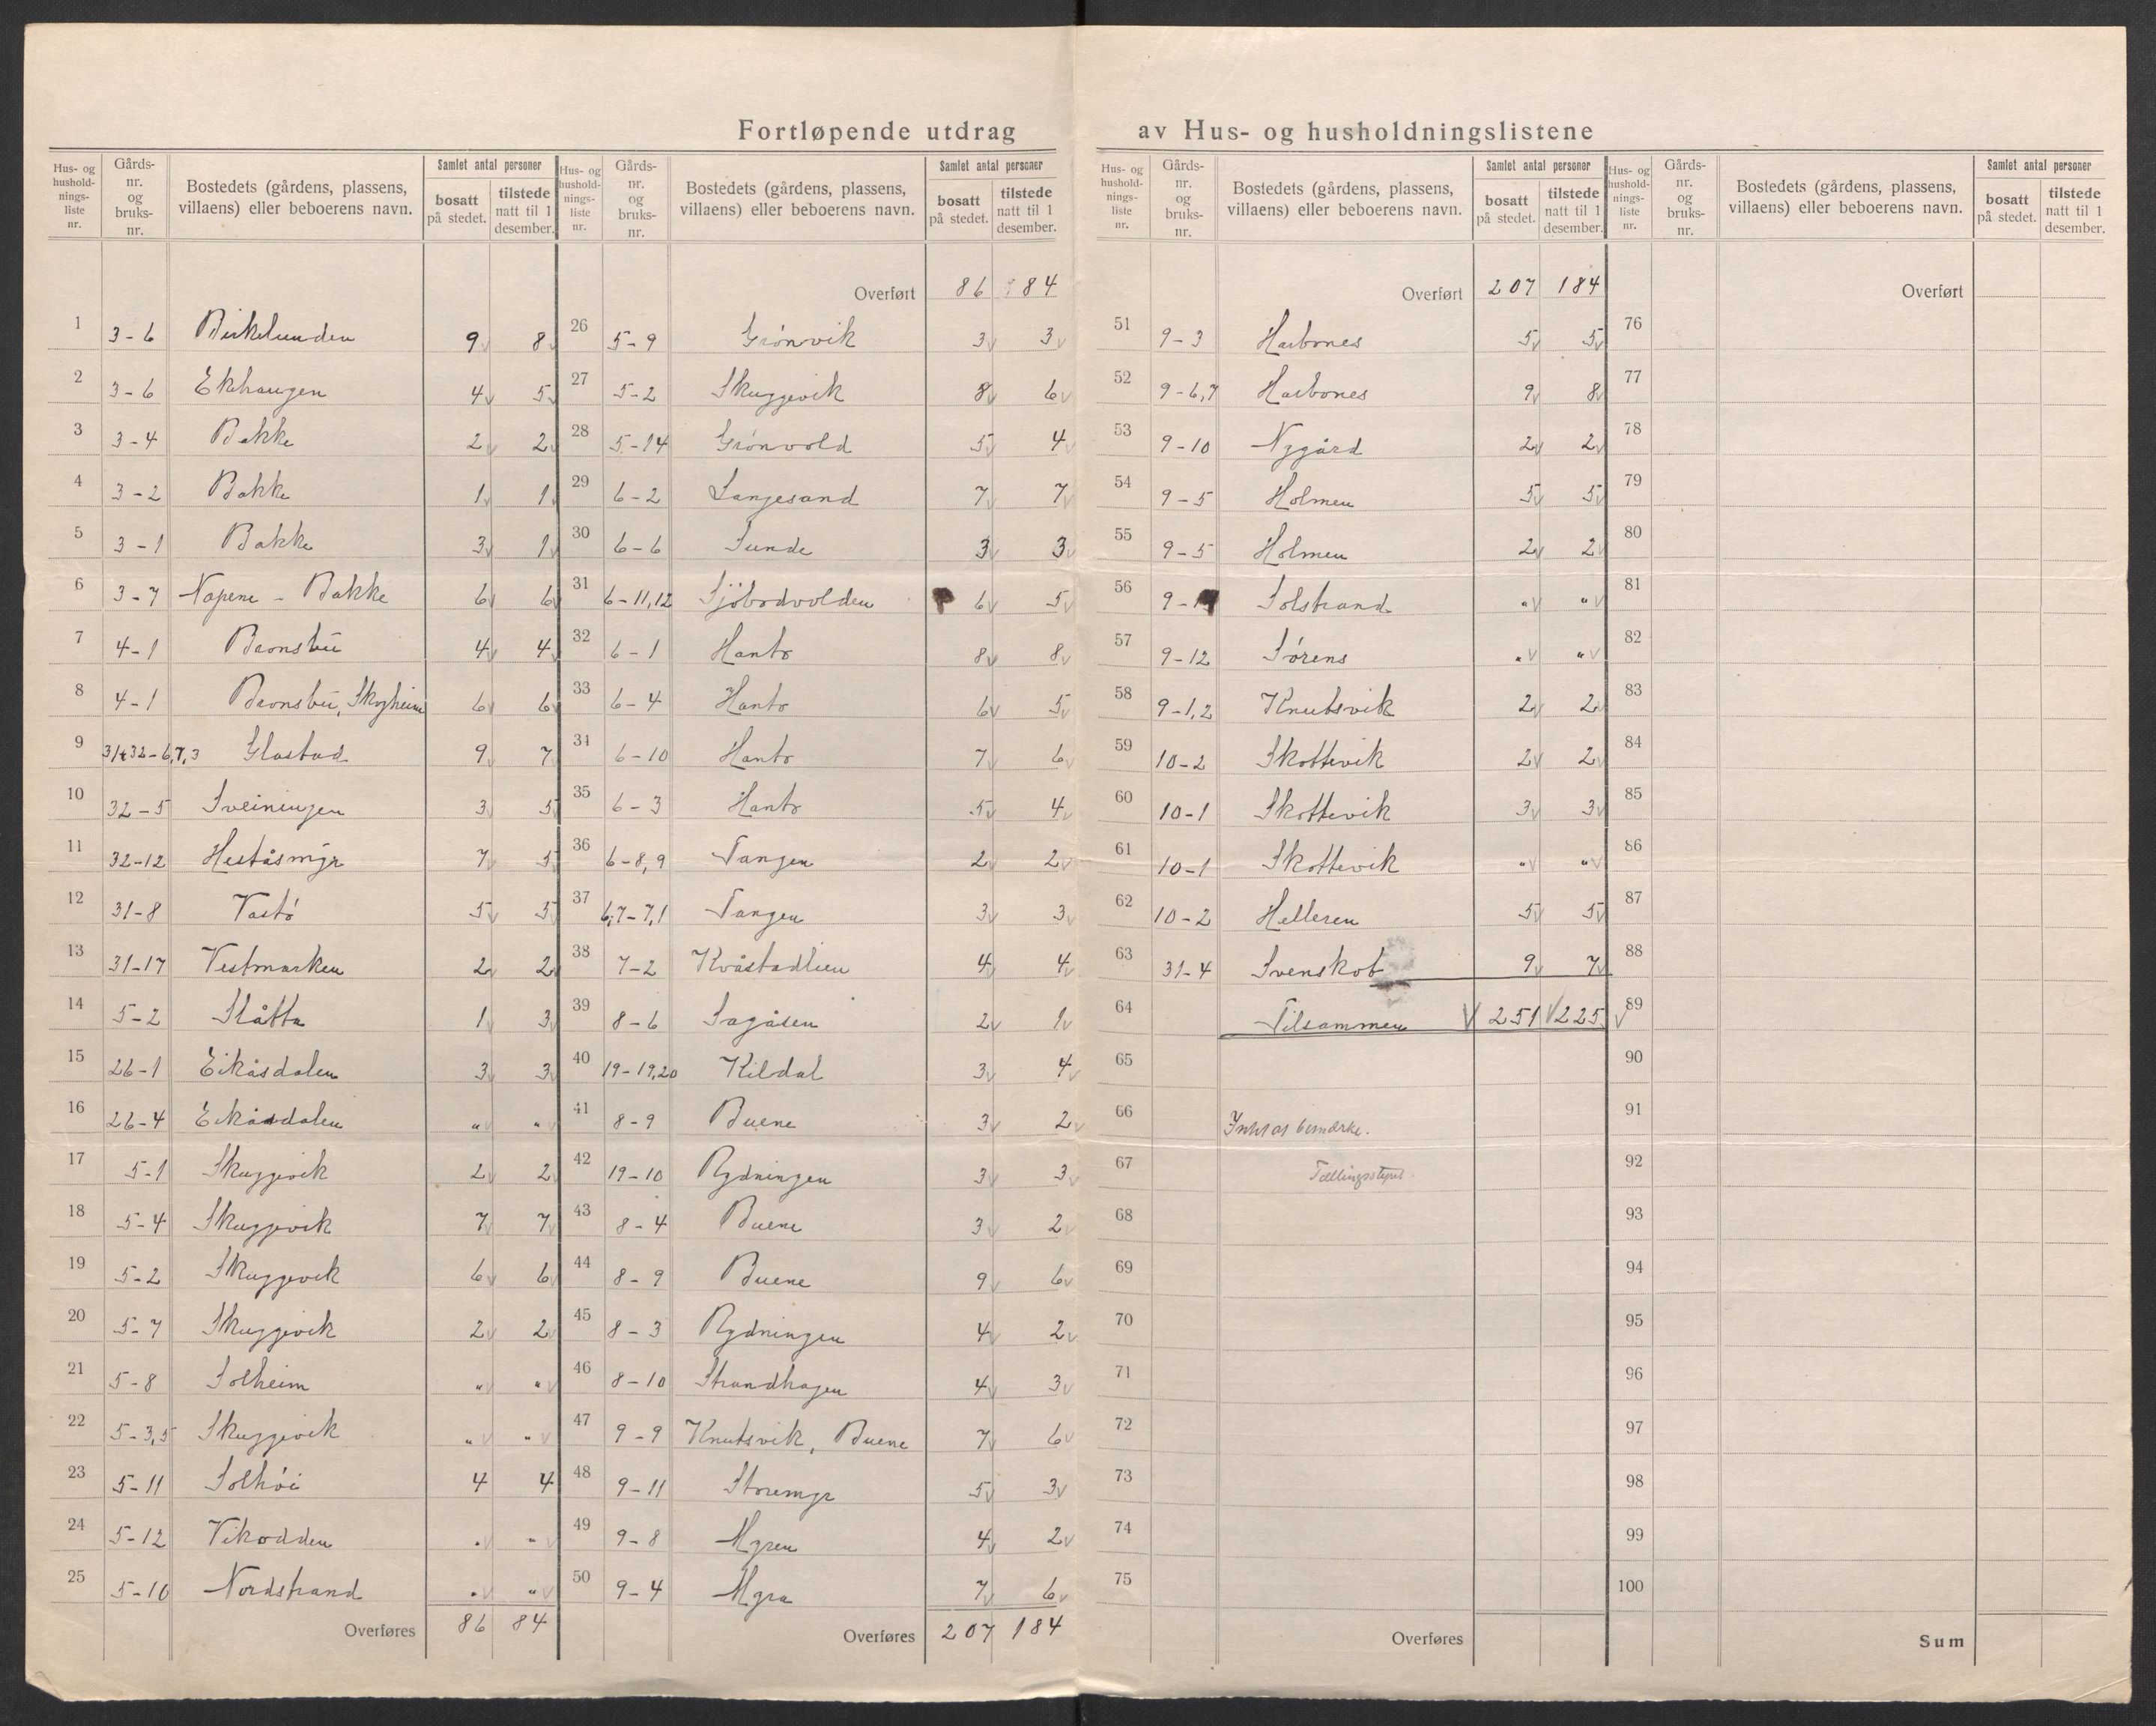 Fortløpende utdrag av Hus- og husholdningslistene
Hus- og husholdnings-liste nr. | Gårds-nr. og bruks-nr. | Bostedets (gårdens, plassens, villaens) eller beboerens navn. | Samlet antal personer bosatt på stedet. | tilstede natt til 1 desember.
1 3-6 Birkelunden 9 8
2 3-6 Ekhaugen 4 5
3 3-4 Bakke 2 2
4 3-2 Bakke 1 1
5 3-1 Bakke 3 1
6 3-7 Napene - Bakke 6 6
7 4-1 Bronsbu 4 4
8 4-1 Bronsbu, Skogheim 6 6
9 31&32-6,7,3 Glastad 9 7
10 32-5 Sveiningen 3 5
11 32-12 Heståsmyr 7 5
12 31-8 Vastø 5 5
13 31-17 Vestmarken 2 2
14 5-2 Slåtta 1 3
15 26-1 Eikåsdalen 3 3
16 26-4 Eikåsdalen " "
17 5-1 Skuggevik 2 2
18 5-4 Skuggevik 7 7
19 5-2 Skuggevik 6 6
20 5-7 Skuggevik 2 2
21 5-8 Solheim " "
22 5-3,5 Skuggevik " "
23 5-11 Solhøi 4 4
24 5-12 Vikodden " "
25 5-10 Nordstrand " "
Overføres 86 84
Hus- og husholdnings-liste nr. | Gårds-nr. og bruks-nr. | Bostedets (gårdens, plassens, villaens) eller beboerens navn. | Samlet antal personer bosatt på stedet. | tilstede natt til 1 desember.
Overført 86 84
26 5-9 Grønvik 3 3
27 5-2 Skuggevik 8 6
28 5-14 Grønvold 5 4
29 6-2 Langesand 7 7
30 6-6 Sunde 3 3
31 6-11,12 Sjøbodvolden 6 5
32 6-1 Hantø 8 8
33 6-4 Hantø 6 5
34 6-10 Hantø 7 6
35 6-3 Hantø 5 4
36 6-8,9 Tangen 2 2
37 6,7-7,1 Tangen 3 3
38 7-2 Kvåstadlien 4 4
39 8-6 Sagåsen 2 1
40 19-19,20 Kildal 3 4
41 8-9 Buene 3 2
42 19-10 Rydningen 3 3
43 8-4 Buene 3 2
44 8-9 Buene 9 6
45 8-3 Rydningen 4 2
46 8-10 Strandhagen 4 3
47 9-9 Knutsvik, Buene 7 6
48 9-11 Storemyr 5 3
49 9-8 Myren 4 2
50 9-4 Myra 7 6
Overføres 207 184
Hus- og husholdnings-liste nr. | Gårds-nr. og bruks-nr. | Bostedets (gårdens, plassens, villaens) eller beboerens navn. | Samlet antal personer bosatt på stedet. | tilstede natt til 1 desember.
Overført 207 184
51 9-3 Harbones 5 5
52 9-6,7 Harbones 9 8
53 9-10 Nygård 2 2
54 9-5 Holmen 5 5
55 9-5 Holmen 2 2
56 9-1 Solstrand " "
57 9-12 Sørens " "
58 9-1,2 Knutsvik 2 2
59 10-2 Skottevik 2 2
60 10-1 Skottevik 3 3
61 10-1 Skottevik " "
62 10-2 Helleren 5 5
63 31-4 Svenskot 9 7
64 Tilsammen 251 225
65
66 Intet at bemærke.
67 Tællingsstyret.
68
69
70
71
72
73
74
75
Overføres
Hus- og husholdnings-liste nr. | Gårds-nr. og bruks-nr. | Bostedets (gårdens, plassens, villaens) eller beboerens navn. | Samlet antal personer bosatt på stedet. | tilstede natt til 1 desember.
Overført
76
77
78
79
80
81
82
83
84
85
86
87
88
89
90
91
92
93
94
95
96
97
98
99
100
Sum